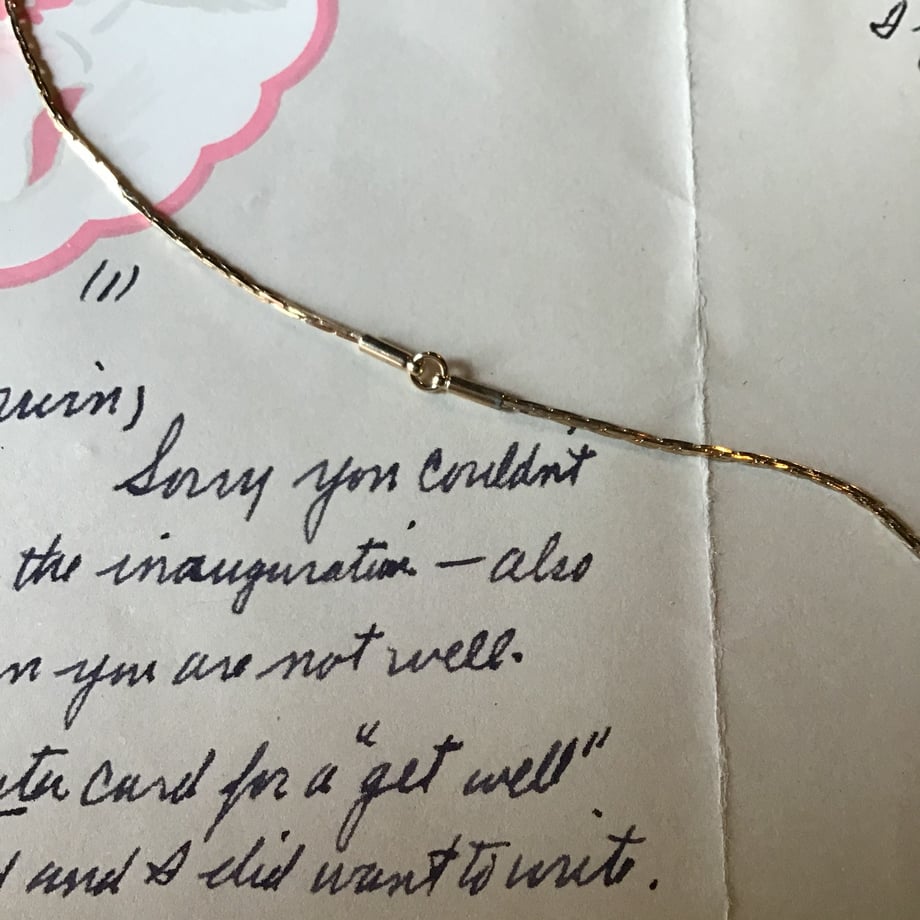 (1)
Sorry you couldn't
the inauguration — also
you are not well.
card for a "get well"
and I did want to write.